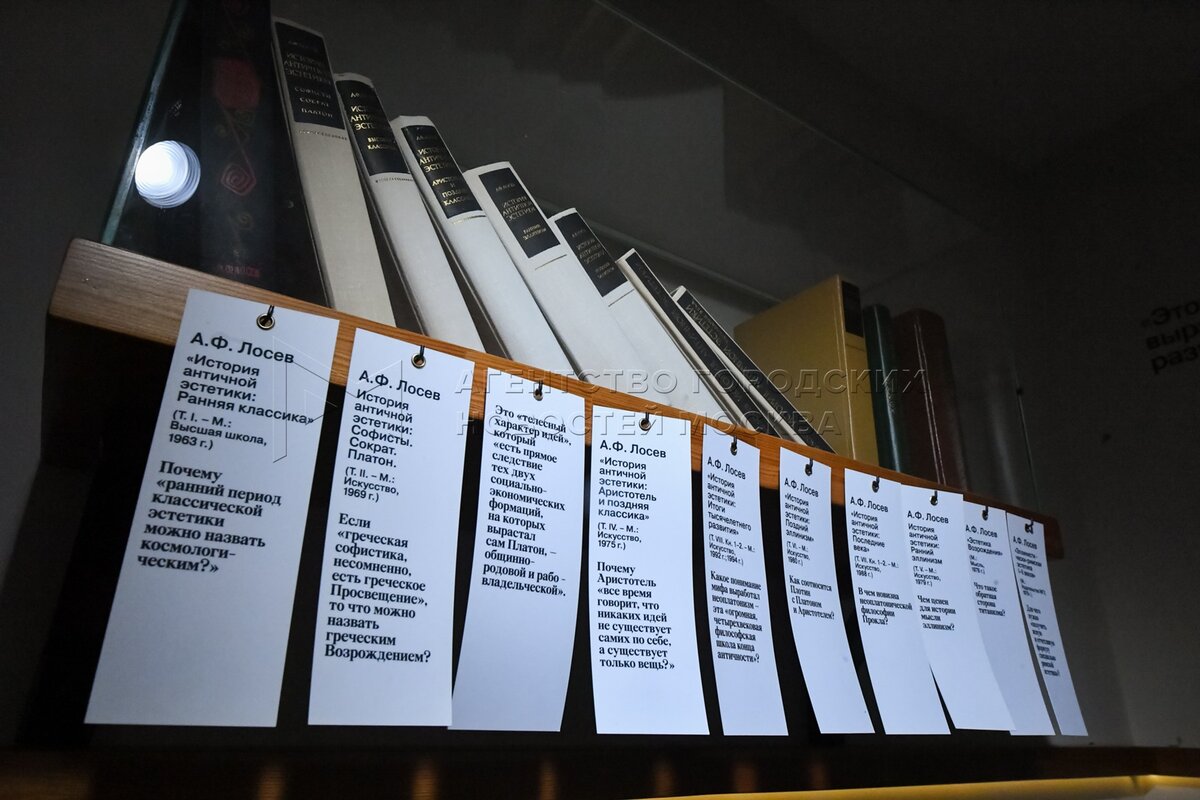 ИСТОРИЯ
АНТИЧНОЙ
ЭСТЕТИКИ
СОФИСТЫ
СОКРАТ
ПЛАТОН
АГЕНТСТВО ГОРОДСКИХ
НОВОСТЕЙ МОСКВА
А.Ф. Лосев
«История
античной
эстетики:
Ранняя классика»
(Т. I. – М.:
Высшая школа,
1963 г.)
Почему
«ранний период
классической
эстетики
можно назвать
космологи-
ческим?»
А.Ф. Лосев
История
античной
эстетики:
Софисты.
Сократ.
Платон.
(Т. II. – М.:
Искусство,
1969 г.)
Если
«греческая
софистика,
несомненно,
есть греческое
Просвещение»,
то что можно
назвать
греческим
Возрождением?
Это «телесный
характер идей»,
который
«есть прямое
следствие
тех двух
социально-
экономических
формаций,
на которых
вырастал
сам Платон, –
общинно-
родовой и рабо-
владельческой».
А.Ф. Лосев
«История
античной
эстетики:
Аристотель
и поздняя
классика»
(Т. IV. – М.:
Искусство,
1975 г.)
Почему
Аристотель
«все время
говорит, что
никаких идей
не существует
самих по себе,
а существует
только вещь?»
А.Ф. Лосев
«История
античной
эстетики:
Итоги
тысячелетнего
развития»
(Т. VIII. Кн. 1.–2. – М.:
Искусство,
1992 г.;1994 г.)
Какое понимание
мифа выработал
неоплатонизм –
эта «огромная,
четырехвековая
философская
школа конца
античности»?
А.Ф. Лосев
«История
античной
эстетики:
Поздний
эллинизм»
(Т. VI. – М.:
Искусство,
1980 г.)
Как соотносится
Плотин
с Платоном
и Аристотелем?
А.Ф. Лосев
«История
античной
эстетики:
Последние
века»
(Т. VII. Кн. 1.-2. – М.:
Искусство,
1988 г.)
В чем новизна
неоплатонической
философии
Прокла?
А.Ф. Лосев
«История
античной
эстетики:
Ранний
эллинизм»
(Т. V. – М.:
Искусство,
1979 г.)
Чем ценен
для истории
мысли
эллинизм?
А.Ф. Лосев
«Эстетика
Возрождения»
(М.:
Мысль,
1978 г.)
Что такое
обратная
сторона
титанизма?
А.Ф. Лосев
«Это